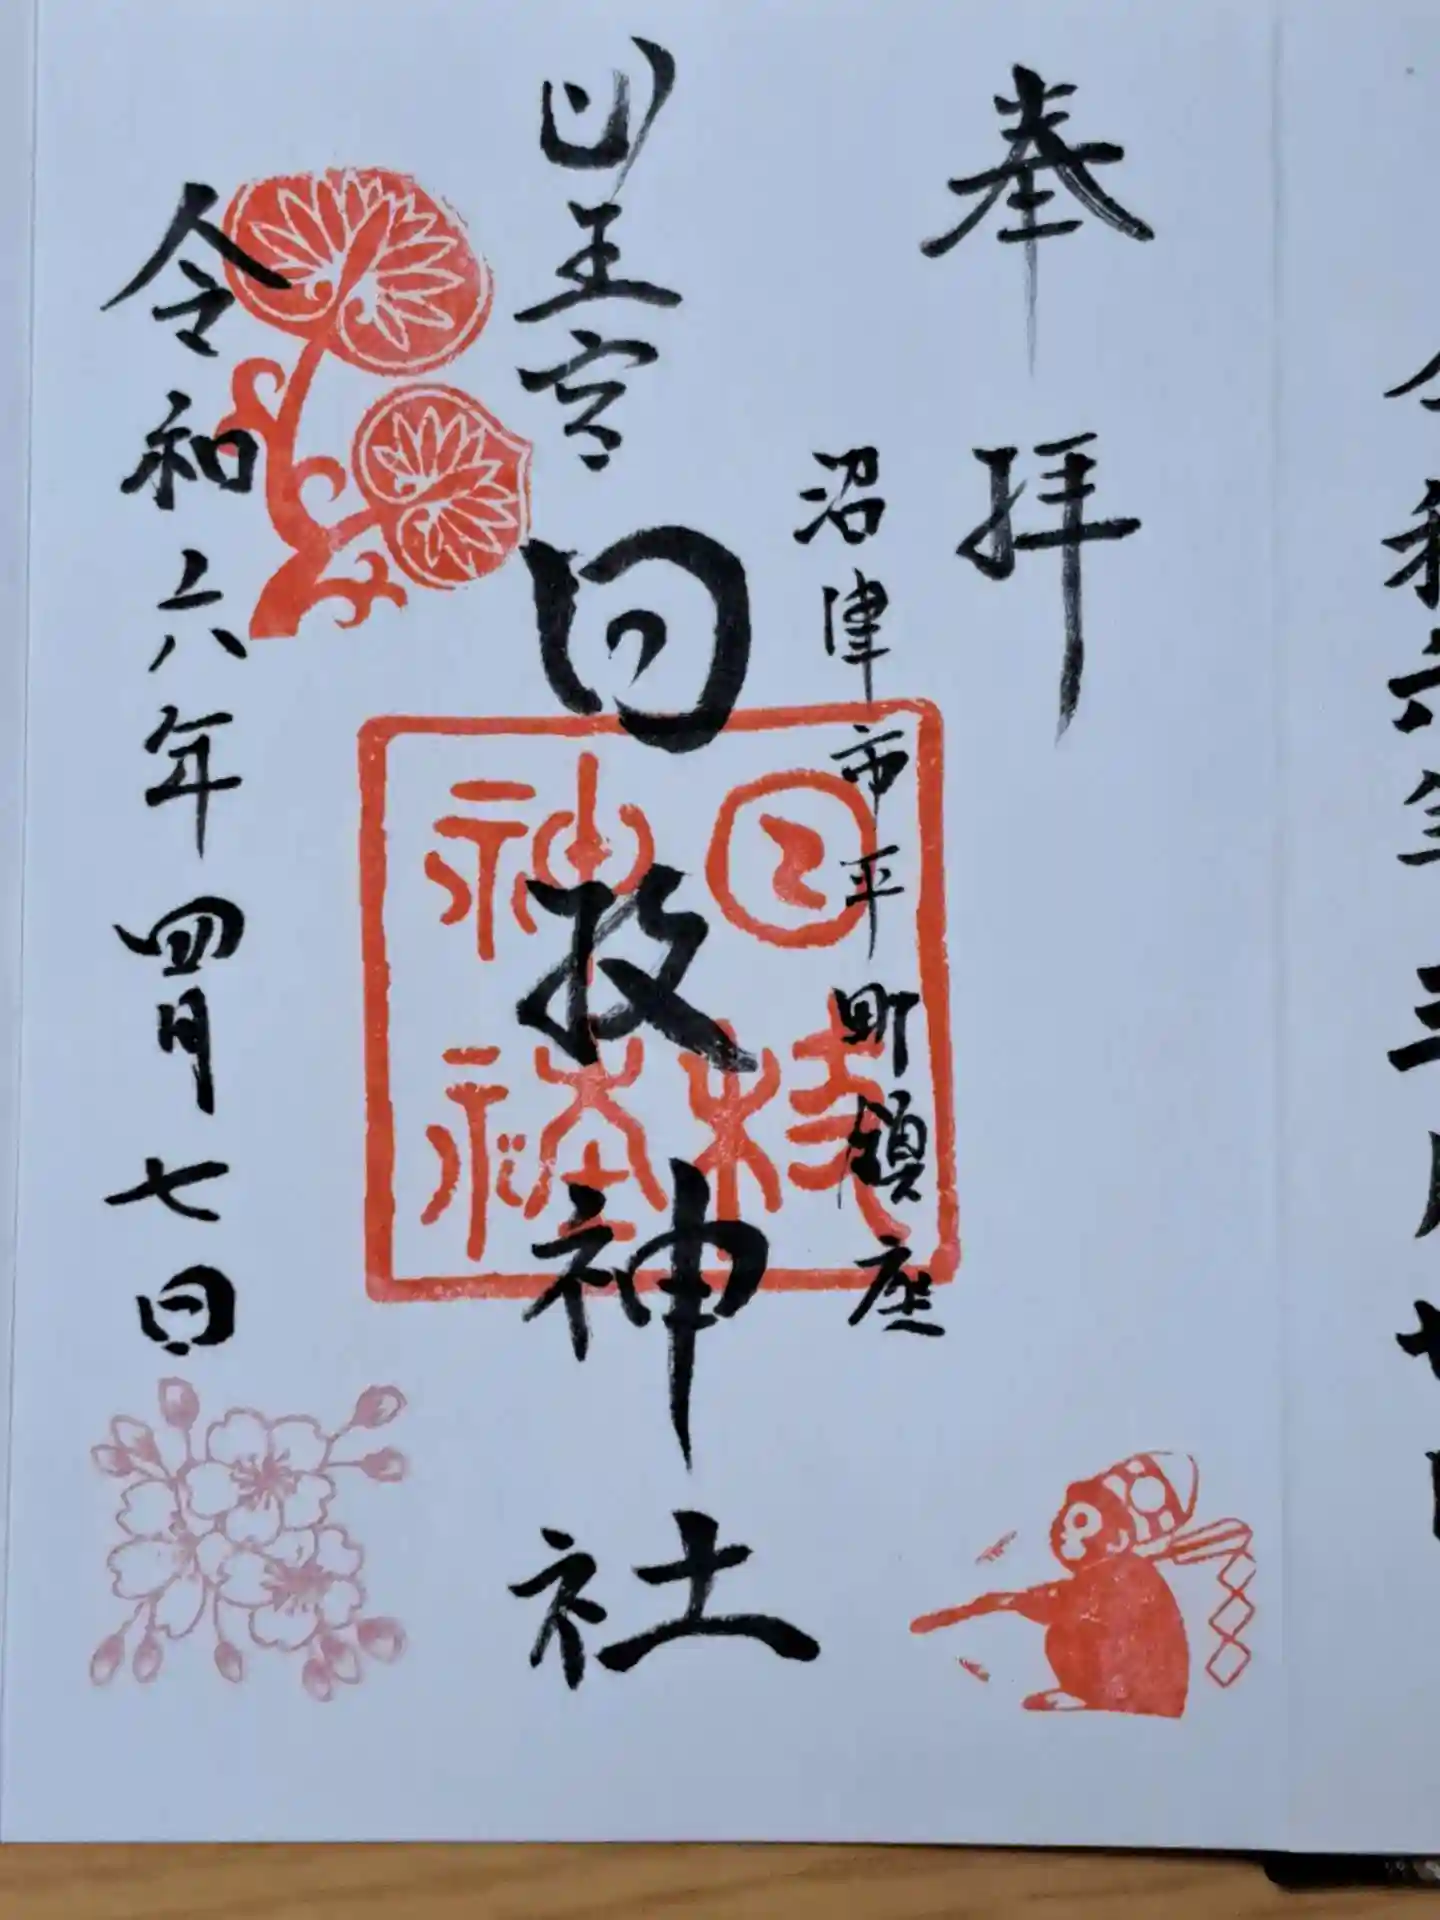 令和六年三月
奉拝
沼津市平町鎮座
山王宮
日枝神社
日枝神社
令和六年四月七日